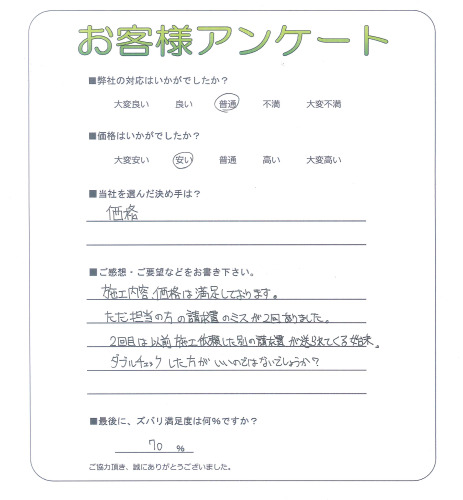 お客様アンケート
■弊社の対応はいかがでしたか？
大変良い 良い 普通 不満 大変不満
■価格はいかがでしたか？
大変安い 安い 普通 高い 大変高い
■当社を選んだ決め手は？
価格
■ご感想・ご要望などをお書き下さい。
施工内容、価格は満足しております。
ただ担当の方の請求書のミスが2回ありました。
2回目は以前施工依頼した別の請求書が送られてくる始末。
ダブルチェックした方がいいのではないでしょうか？
■最後に、ズバリ満足度は何％ですか？
70 ％
ご協力頂き、誠にありがとうございました。